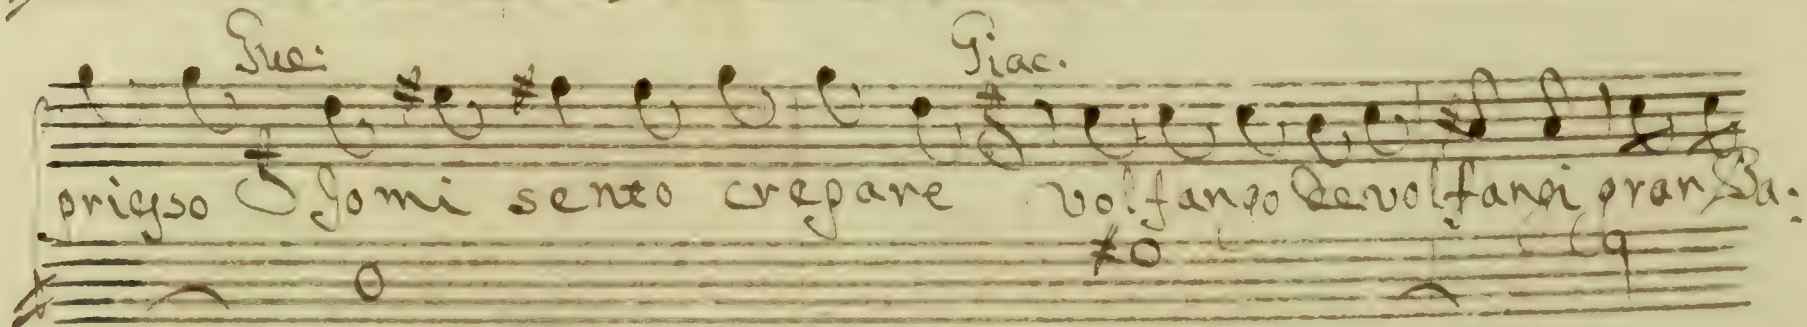 Gue: Giac.
priesso Jo mi sento crepare volfango de volfangi gran Ba: